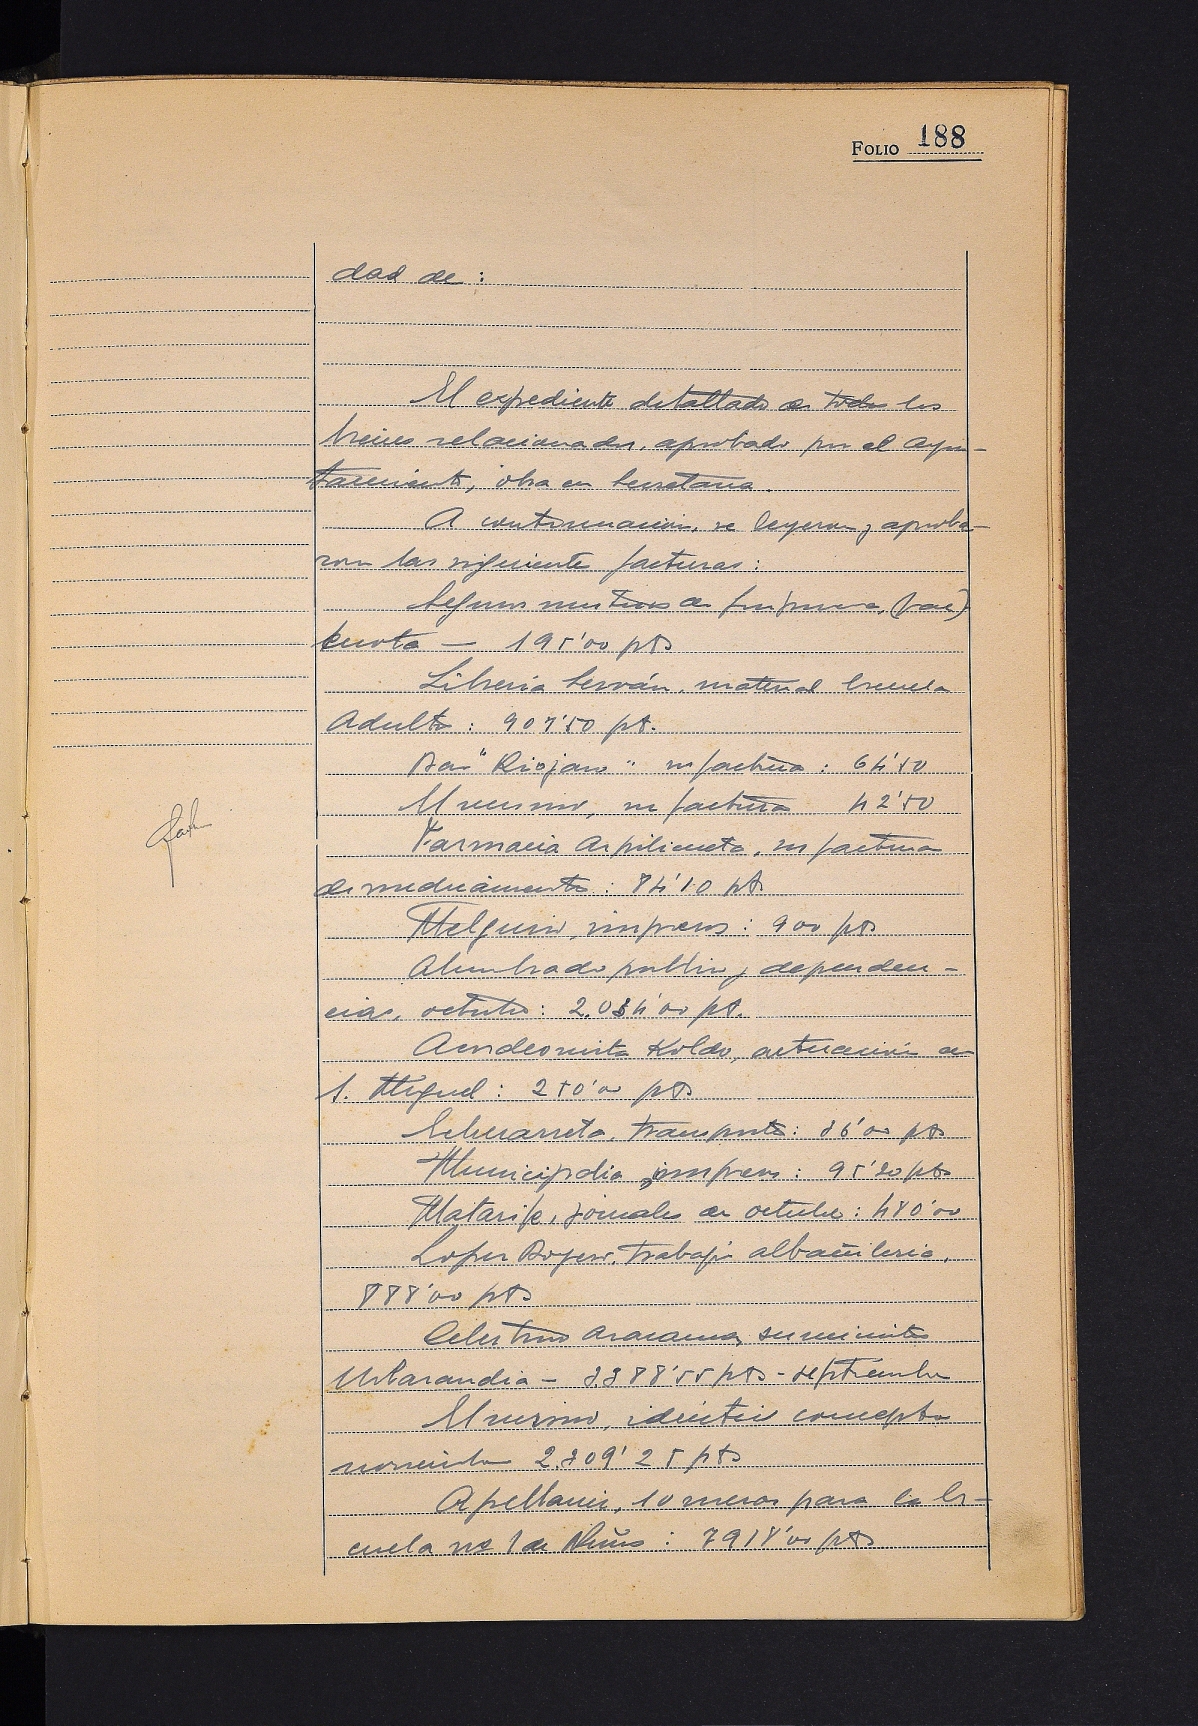 FOLIO 188
dad de :
El expediente detallado de todos los
bienes relacionados, aprobado por el Ayun-
tamiento, obra en Secretaria.
A continuación, se leyeron y aproba-
ron las siguiente facturas :
Seguros mutuos de
cuota — 195'00 pts
Libreria Cerván, material Escuela
Adultos : 907'50 pt.
Bar "Riojano" su factura : 64'50
El mismo, su factura 42'50
Farmacia Azpilicueta, su factura
de medicamentos : 84'10 pts
Melguizo, impresos : 900 pts
Alumbrado publico y dependen-
cias, octubre : 2.034'00 pt.
Acordeonista Koldo, actuación de
S. Miguel : 250'00 pts
Echezarreta, transporte : 36'00 pts
Municipalia, impresos : 95'20 pts
Matarife, jornales de octubre : 480'00
Lopez trabajo albañileria,
888'00 pts
Celestino suministro
Urbarandia - 3388'55 pts - septiembre
El mismo, identico concepto
noviembre 2.309'25 pts
Apellaniz, 10 mesas para la Es-
cuela nº 1 de Niños : 7918'00 pts